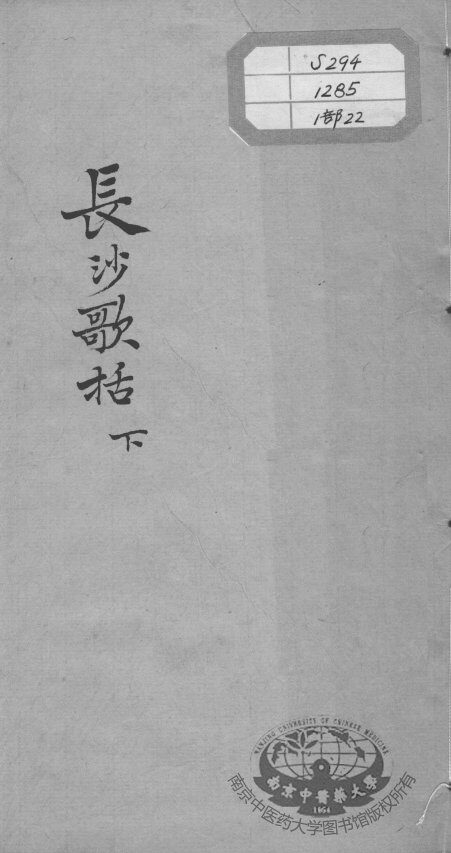 S294
1285
1部22
長沙歌括
下
NANJING UNIVERSITY OF CHINESE MEDICINE
南京中醫藥大學
1954
南京中医药大学图书馆版权所有